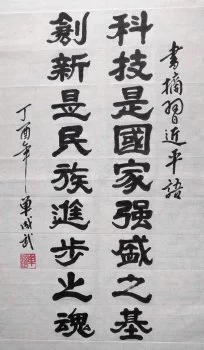 書摘習近平語
科技是國家强盛之基
創新昰民族進步之魂
丁酉年單成武